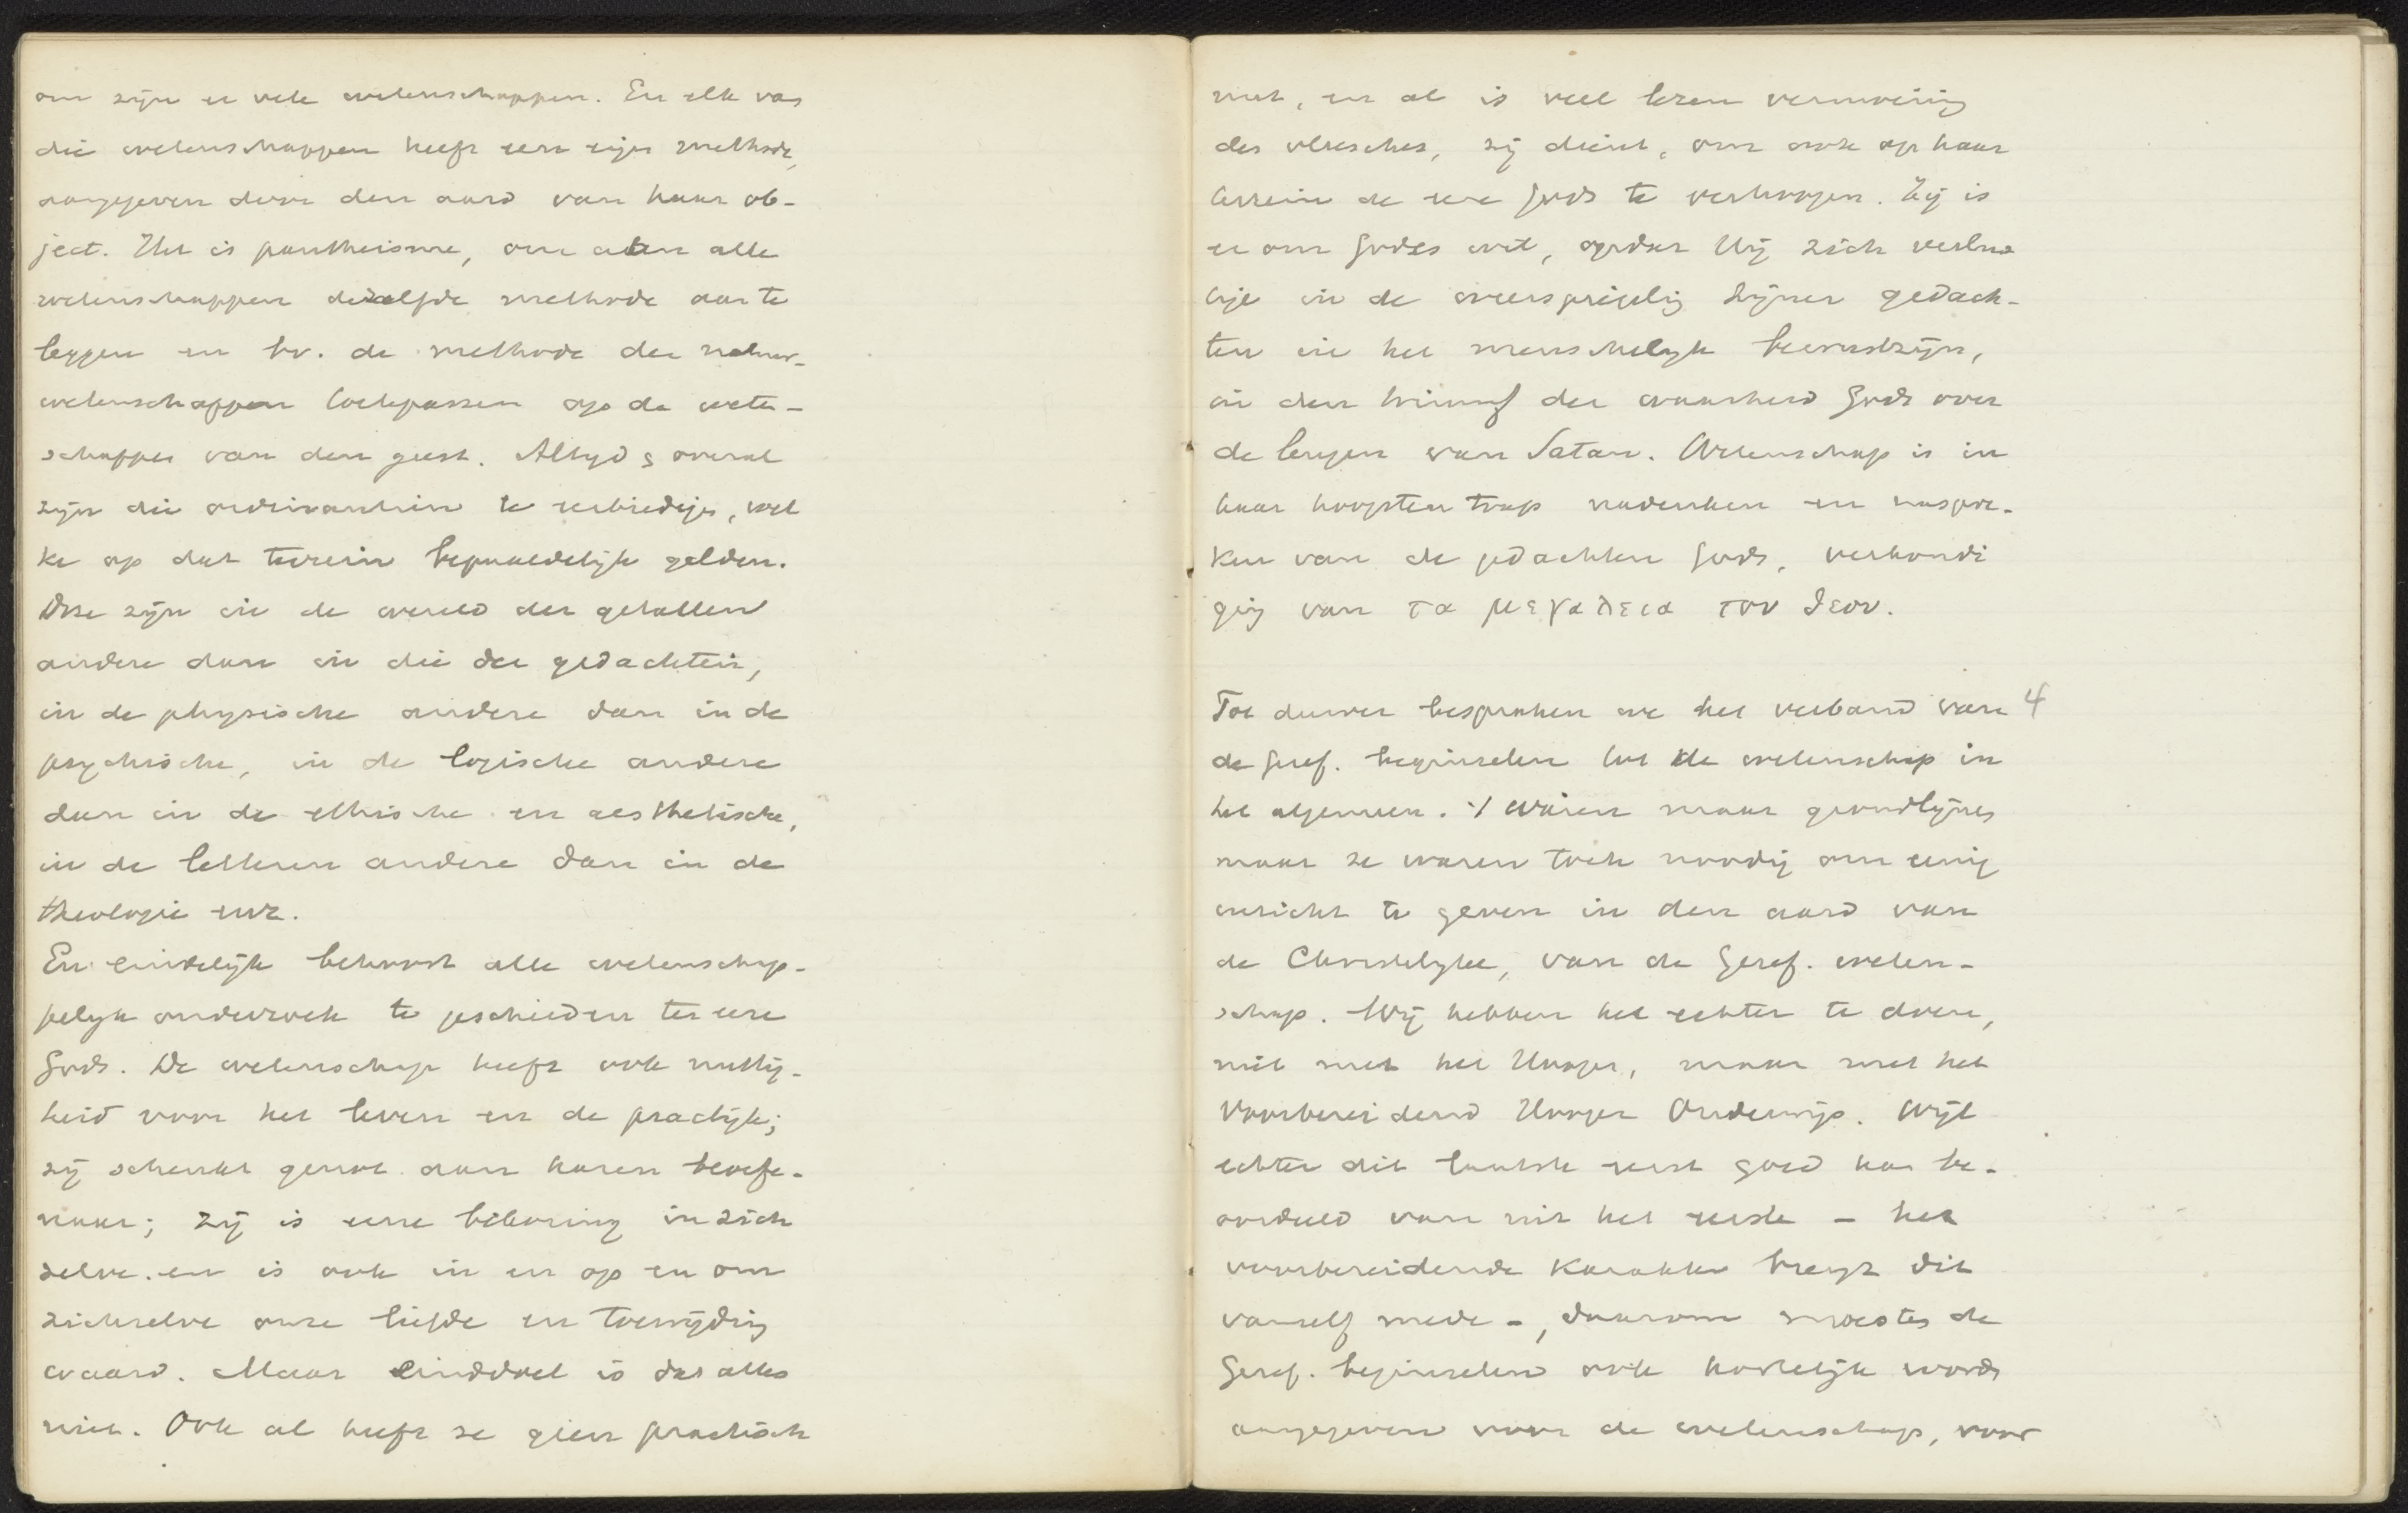 om zijn er vele wetenschappen. En elk van
die wetenschappen heeft een eigen methode,
aangegeven door den aard van haar ob-
ject. Het is pantheisme, om aan alle
wetenschappen dezelfde methode aan te
leggen en bv. de methode der natuur-
wetenschappen toetepassen op de weten-
schappen van den geest. Altijd & overal
zijn die ordinantiën te eerbiedigen, wel
ke op dat terrein bepaaldelijk gelden.
Deze zijn in de wereld der getallen
andere dan in die der gedachten,
in de physische andere dan in de
psychische, in de logische andere
dan in de ethische en aesthetische,
in de letteren andere dan in de
theologie enz.
En eindelijk behoort alle wetenschap-
pelijk onderzoek te geschieden ter eere
Gods. De wetenschap heeft ook nuttig-
heid voor het leven en de practijk;
zij schenkt genot aan haren beoefe-
naar; zij is eene bekoring in zich
zelve. en is ook in en op en om
zichzelve onze liefde en toewijding
waard. Maar einddoel is dat alles
niet. Ook al heeft ze geen practisch
nut, en al is veel lezen vermoeiing
des vleesches, zij dient, om ook op haar
terrein de eere Gods te verhoogen. Zij is
er om Godes wil, opdat Hij zich verlus
tige in de weerspiegeling Zijner gedach-
ten in het menschelijk bewustzijn,
in den triumf der waarheid Gods over
de leugen van Satan. Wetenschap is in
haar hoogsten trap nadenken en naspre-
ken van de gedachten Gods, verkondi
ging van τα μεγαλεια του θεου.
Tot dusver bespraken we het verband van 4
de Geref. beginselen tot de wetenschap in
het algemeen. 't Waren maar grondlijnen
maar ze waren toch noodig om eenig
inzicht te geven in den aard van
de Christelijke, van de Geref. weten-
schap. Wij hebben het echter te doen,
niet met het Hooger, maar met het
Voorbereidend Hooger Onderwijs. Wijl
echter dit laatste eerst goed kan be-
oordeeld van uit het eerste – het
voorbereidende karakter brengt dit
vanzelf mede –, daarom moesten de
Geref. beginselen ook kortelijk worden
aangegeven voor de wetenschap, voor